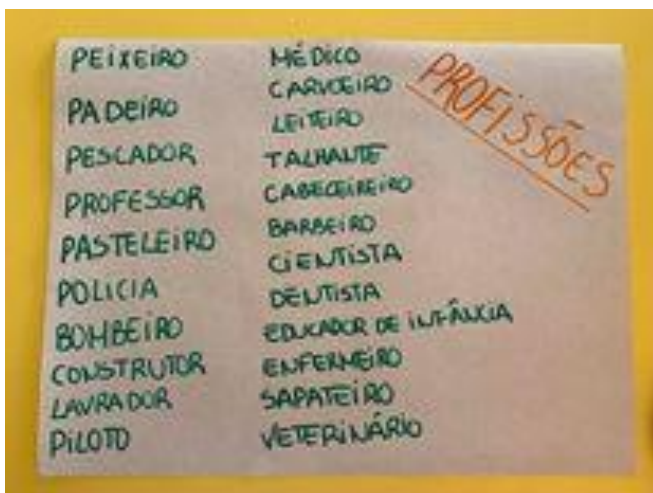 PROFISSÕES
PEIXEIRO
PADEIRO
PESCADOR
PROFESSOR
PASTELEIRO
POLICIA
BOMBEIRO
CONSTRUTOR
LAVRADOR
PILOTO
MÉDICO
CARVOEIRO
LEITEIRO
TALHANTE
CABECEIREIRO
BARBEIRO
CIENTISTA
DENTISTA
EDUCADOR DE INFÂNCIA
ENFERMEIRO
SAPATEIRO
VETERINÁRIO